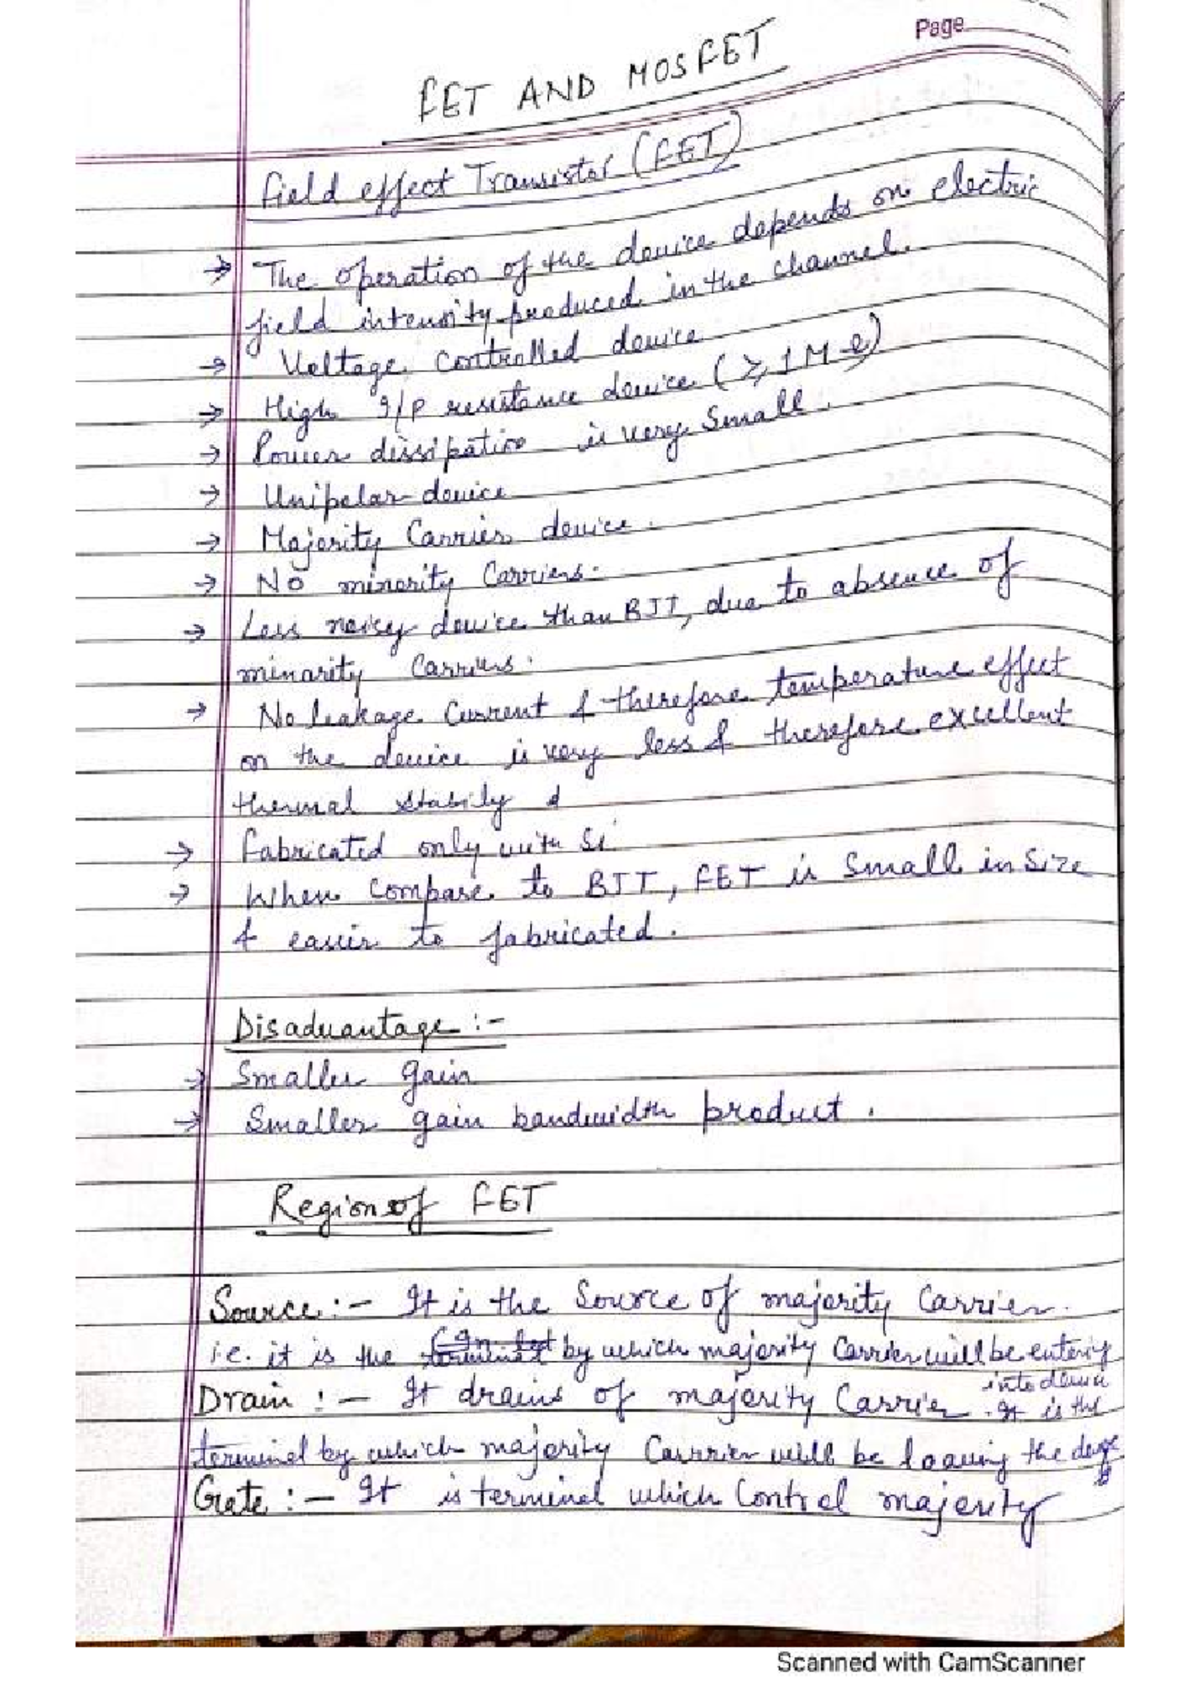 Page
FET AND MOSFET
Field effect Transistor (FET)
→ The operation of the device depends on electric
field intensity produced in the channel.
→ Voltage Controlled device
→ High I/P resistance device (≥ 1 M Ω)
→ Power dissipation is very Small.
→ Unipolar device
→ Majority Carrier device.
→ No minority Carriers.
→ Less noisy device than BJT, due to absence of
minority Carriers.
→ No leakage Current & therefore temperature effect
on the device is very less & therefore excellent
thermal stabily &
→ Fabricated only with Si
→ When Compare to BJT, FET is Small in Size
& easier to fabricated.
Disadvantage :-
→ Smaller gain
→ Smaller gain bandwidth product.
Region of FET
Source :- It is the Source of majority Carrier.
i.e. it is the terminal by which majority Carrier will be entering
into device
Drain :- It drains of majority Carrier. It is the
terminal by which majority Carrier will be leaving the device
Gate :- It is terminal which Control majority
Scanned with CamScanner